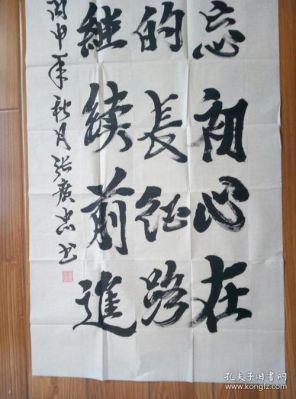 忘初心在
的長征路
継续前進
丙申年秋月张广志书
孔夫子旧书网
kongfz.com